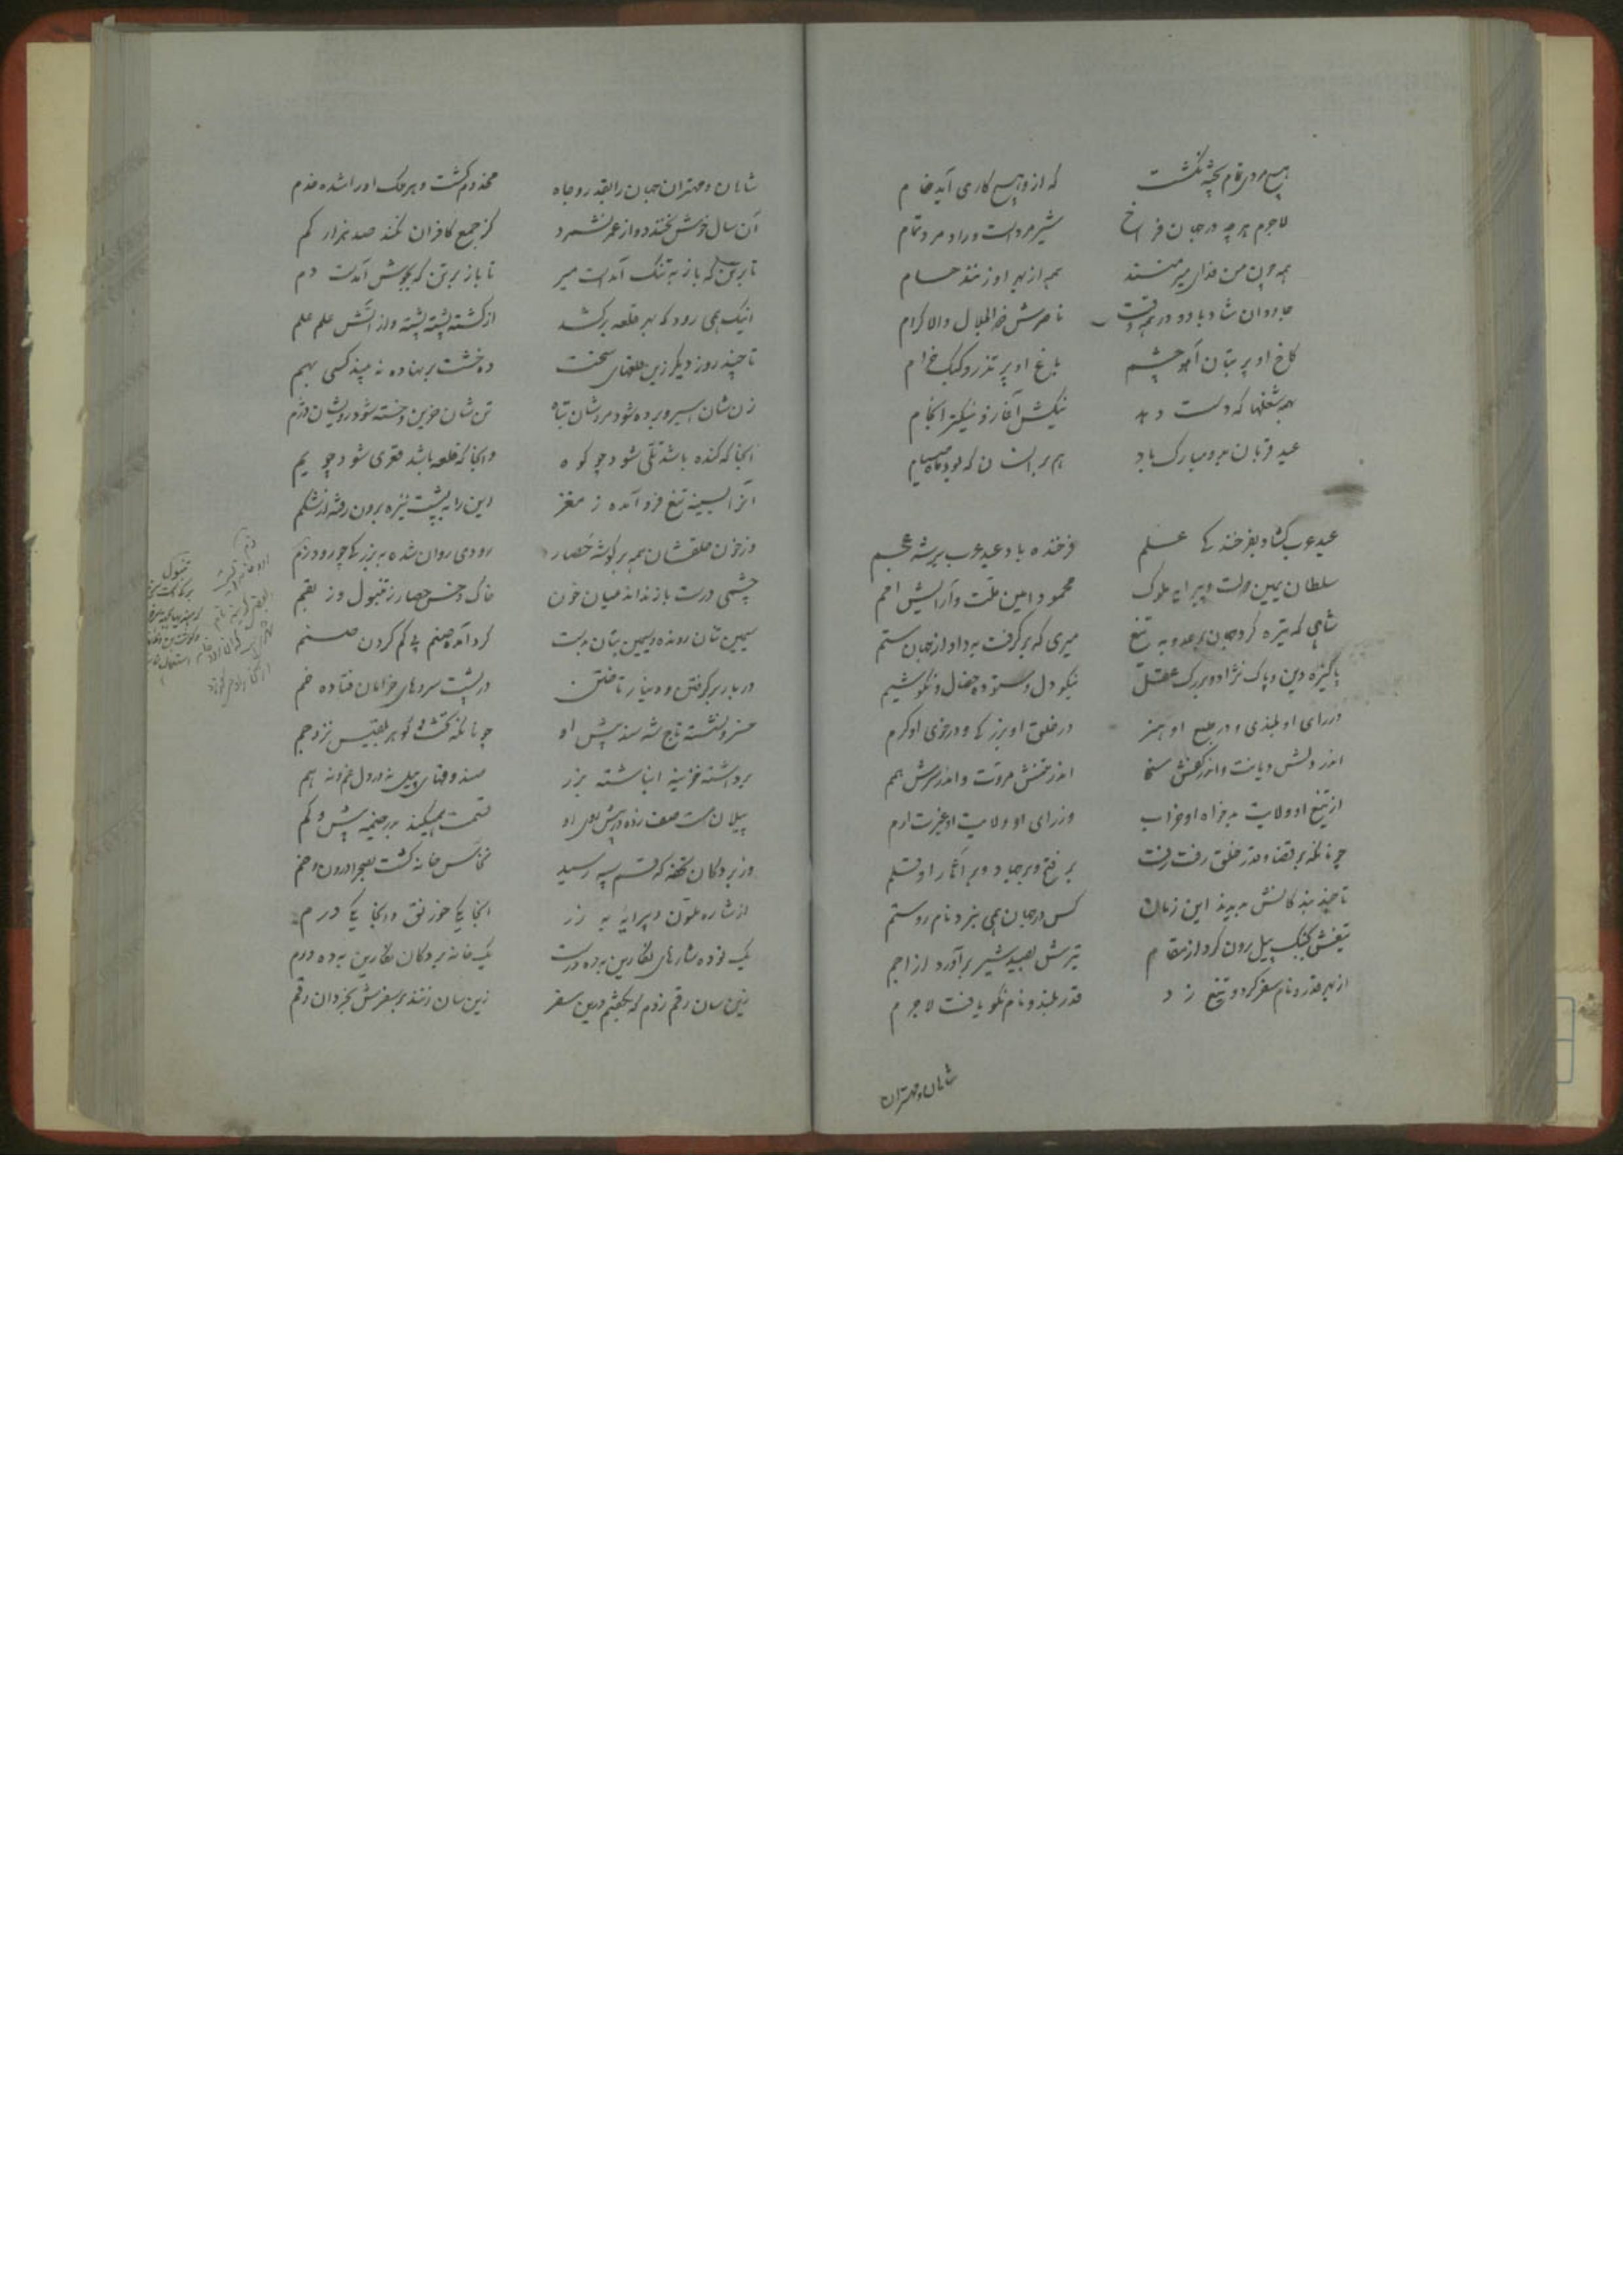 هیچ مردی تمام پخته نگشت که از و هیچ کاری آید خام
لاجرم هر چه در جهان فراخ شیر مردست و راد مرد و تمام
همه چون من فدای میر منند همه از بهر او زنند حسام
جاودان شاد باد و در همه وقت ناصرش ذوالجلال والاکرام
کاخ او پر بتان آهو چشم باغ او پر تذرو کبک خرام
بهمه شغلها که دست دهد نیکش آغاز و نیکتر انجام
عید قربان برو مبارک باد هم بر انسان که بود ماه صیام
عید عرب گشاد بفرخندگی علم فرخنده باد عید عرب بر شه عجم
سلطان یمین دولت و پیرایه ملوک محمود امین ملت و آرایش امم
شاهی که تیره کرد جهان بر عدو به تیغ میری که برگرفت به داد از جهان ستم
پاکیزه دین و پاک نژاد و بزرگ عقل نیکو دل و ستوده خصال و نکوشیم
در رای او بلندی و در طبع او هنر در خلق او بزرگی و در خوی او کرم
اندر دلش دیانت و اندر کفش سخا اندر تنش مروت و اندر سرش همم
از تیغ او ولایت بدخواه او خراب وز رای او ولایت او غیرت ارم
چونانکه بر قضا و قدر خلق رفت رفت بر فتح و بر جهاد و بر آثار او قلم
تا چند بندگانش بدیدند این زمان کس در جهان همی نبرد نام روستم
تیغش بگنگ پیل برون کرد از مقام تیرش ببیشه شیر برآورد از اجم
از بهر قدر و نام سفر کرد و تیغ زد قدر بلند و نام نکو یافت لاجرم
شاهان و مهتران
شاهان و مهتران جهان را بقدر و جاه مخدوم گشت و هر ملک او را شده خدم
آن سال خوش نخندد و از عمر نشمرد کز جمع کافران نکند صد هزار کم
تا برتن که باز به تنگ آمدست میر تا باز بر تن که بجوش آمدست دم
اینک همی رود که بهر قلعه برکشد از کشته پشته پشته و از آتش علم علم
تا چند روز دیگر زین قلعهای سخت ده خشت بر نهاده نبیند کسی بهم
زن شان اسیر و برده شود مردشان تباه تن شان حزین و خسته شود روحشان دژم
آنجا که کنده باشد تلی شود چو کوه و آنجا که قلعه باشد قعری شود چو یم
آنرا بسینه تیغ فرو آمده ز مغز واین را به پشت نیزه برون رفته از شکم
وز خون حلقشان همه بر گوشه حصار رودی روان شده به بزرگی چو رود زم
چشمی درست باز نداند میان خون خاک و خس حصار ز تنبول وز بقم
سیمین تنان رونده و سیمین بتان بدست گرد آمده صنم پی گم کردن صنم
دربار بر گرفتن و دینار تافتن در پشت سروهای خرامان فتاده خم
خسرو نشسته تاج شه هند پیش او چونانکه تخت گوهر بلقیس نزد جم
برداشته خزینه انباشته بزر صندوقهای پیل نه در دل غم و نه هم
پیلان مست صف زده در پیش او قسمت همیکنند بهر خیمه بیش و کم
وز بردگان تحفه که قسم سپه رسید نخاس خانه گشت بصحرا درون خیم
از شاره ملون و پیرایه به زر آنجا یکی خورنق و آنجا یکی درم
یک توده شارهای نگارین به ده درست یک خانه بردگان نگارین به ده درم
زین سان رقم زدم که بگفتم درین سفر زین سان زنند بر سفرش بخردان رقم